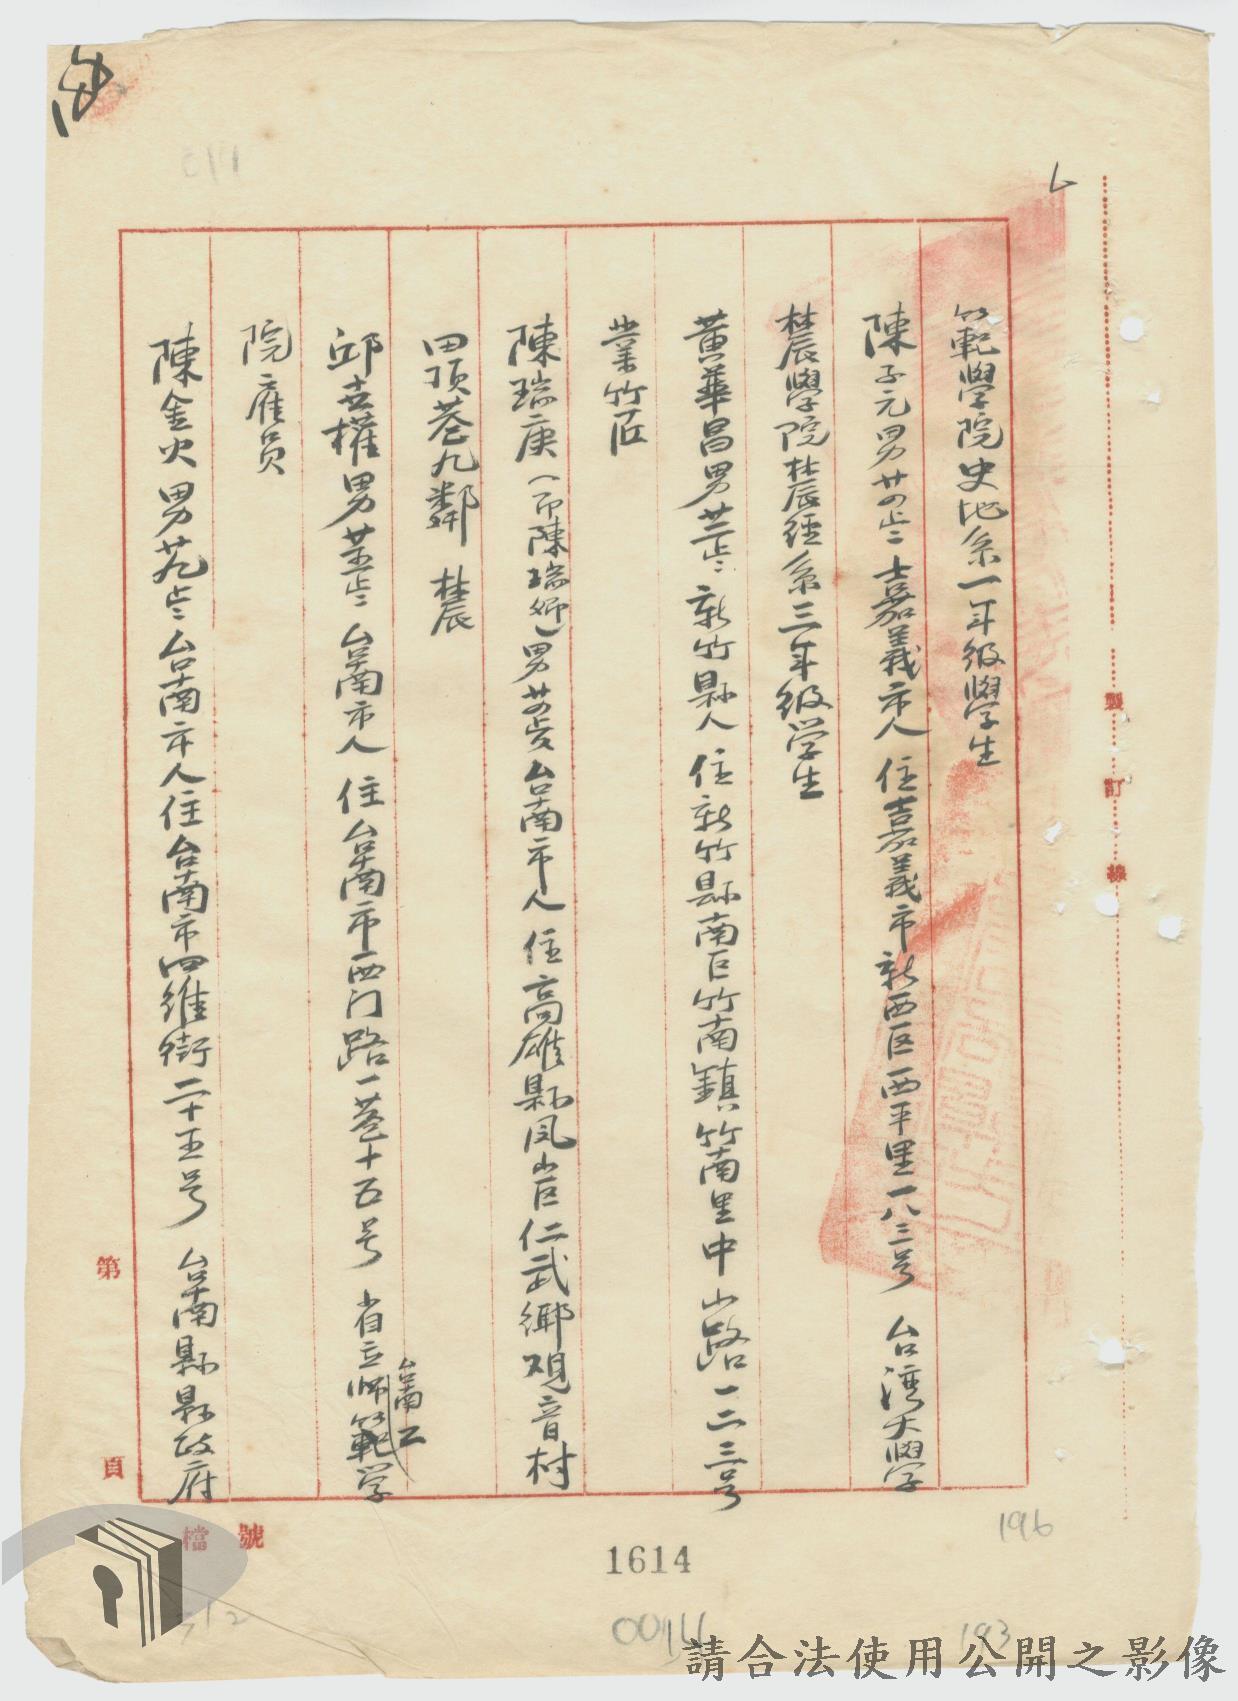 範學院史地系一年級學生
陳子元男廿四歲嘉義市人住嘉義市新西区西平里一八三号台湾大學
農學院農經系三年級学生
黃華昌男廿三歲新竹縣人住新竹縣南区竹南鎮竹南里中山路一二三号
業竹匠
陳瑞庚(即陳瑞鄉)男廿四歲台南市人住高雄縣凤山区仁武鄉观音村
田頂巷九鄰農
邱吉權男廿五歲台南市人住台南市西门路一巷十五号省立師範学
台南工
院雇员
陳金火男廿九歲台南市人住台南市四維街二十五号台南縣縣政府
製訂線
第 頁
檔號
1614
196
193
請合法使用公開之影像